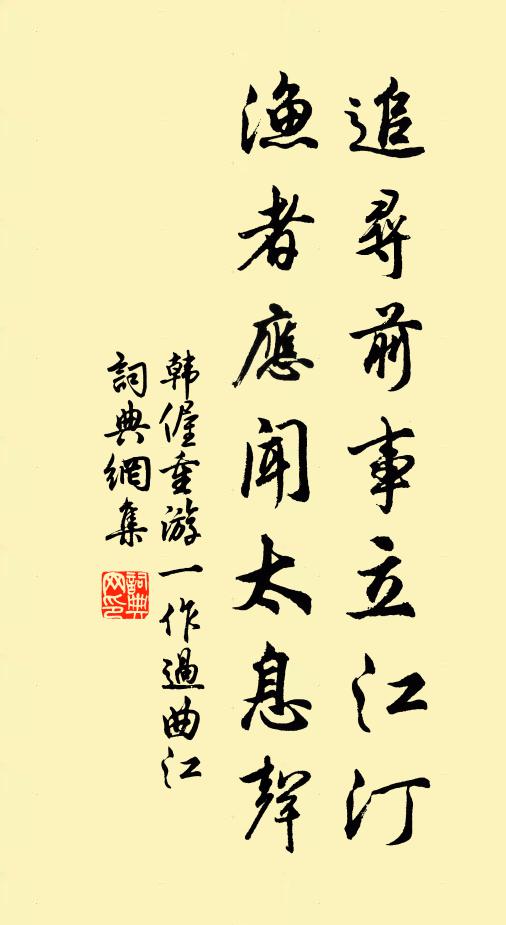 追尋前事立江汀
漁者應聞太息聲
韩偓重游一作過曲江
詞典網集
詞典
网印